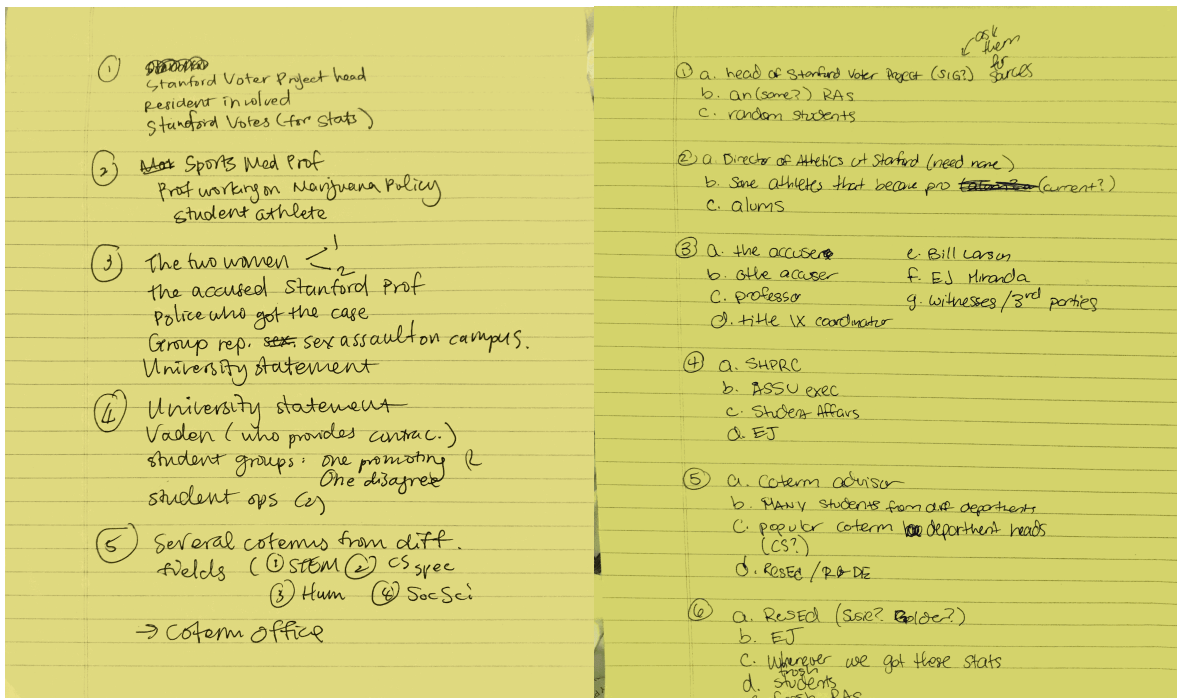 ①
Stanford Voter Project head
Resident involved
Stanford Votes (for Stats)
② Sports Med Prof
Prof working on Marijuana Policy
student athlete
③ The two women < 1
2
the accused Stanford Prof
Police who got the case
Group rep. sex assault on campus.
University statement
④ University statement
Vaden (who provides contrac.)
student groups: one promoting
One disagree
student ops (2)
⑤ Several coterms from diff.
fields (① STEM ② CS spec
③ Hum ④ SocSci
→ Coterm office
ask
them
for
sources
① a. head of Stanford Voter Project (SIG?)
b. an (some?) RAs
c. random students
② a. Director of Athletics at Stanford (need name)
b. some athletes that became pro (current?)
c. alums
③ a. the accuser
b. othe accuser
c. professor
d. title IX coordinator
e. Bill Larson
f. EJ Miranda
g. witnesses/3rd parties
④ a. SHPRC
b. ASSU exec
c. Student Affairs
d. EJ
⑤ a. Coterm advisor
b. MANY students from diff departments
c. popular coterm department heads
(CS?)
d. ResEd / R&DE
⑥ a. ResEd (Susie?
b. EJ
c. Wherever we got these stats
frosh
d. students
e. frosh RAs